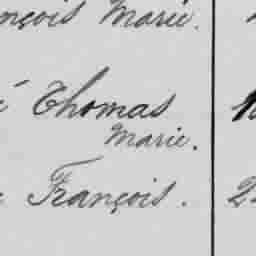 nçois Marie.
Thomas
Marie.
François.